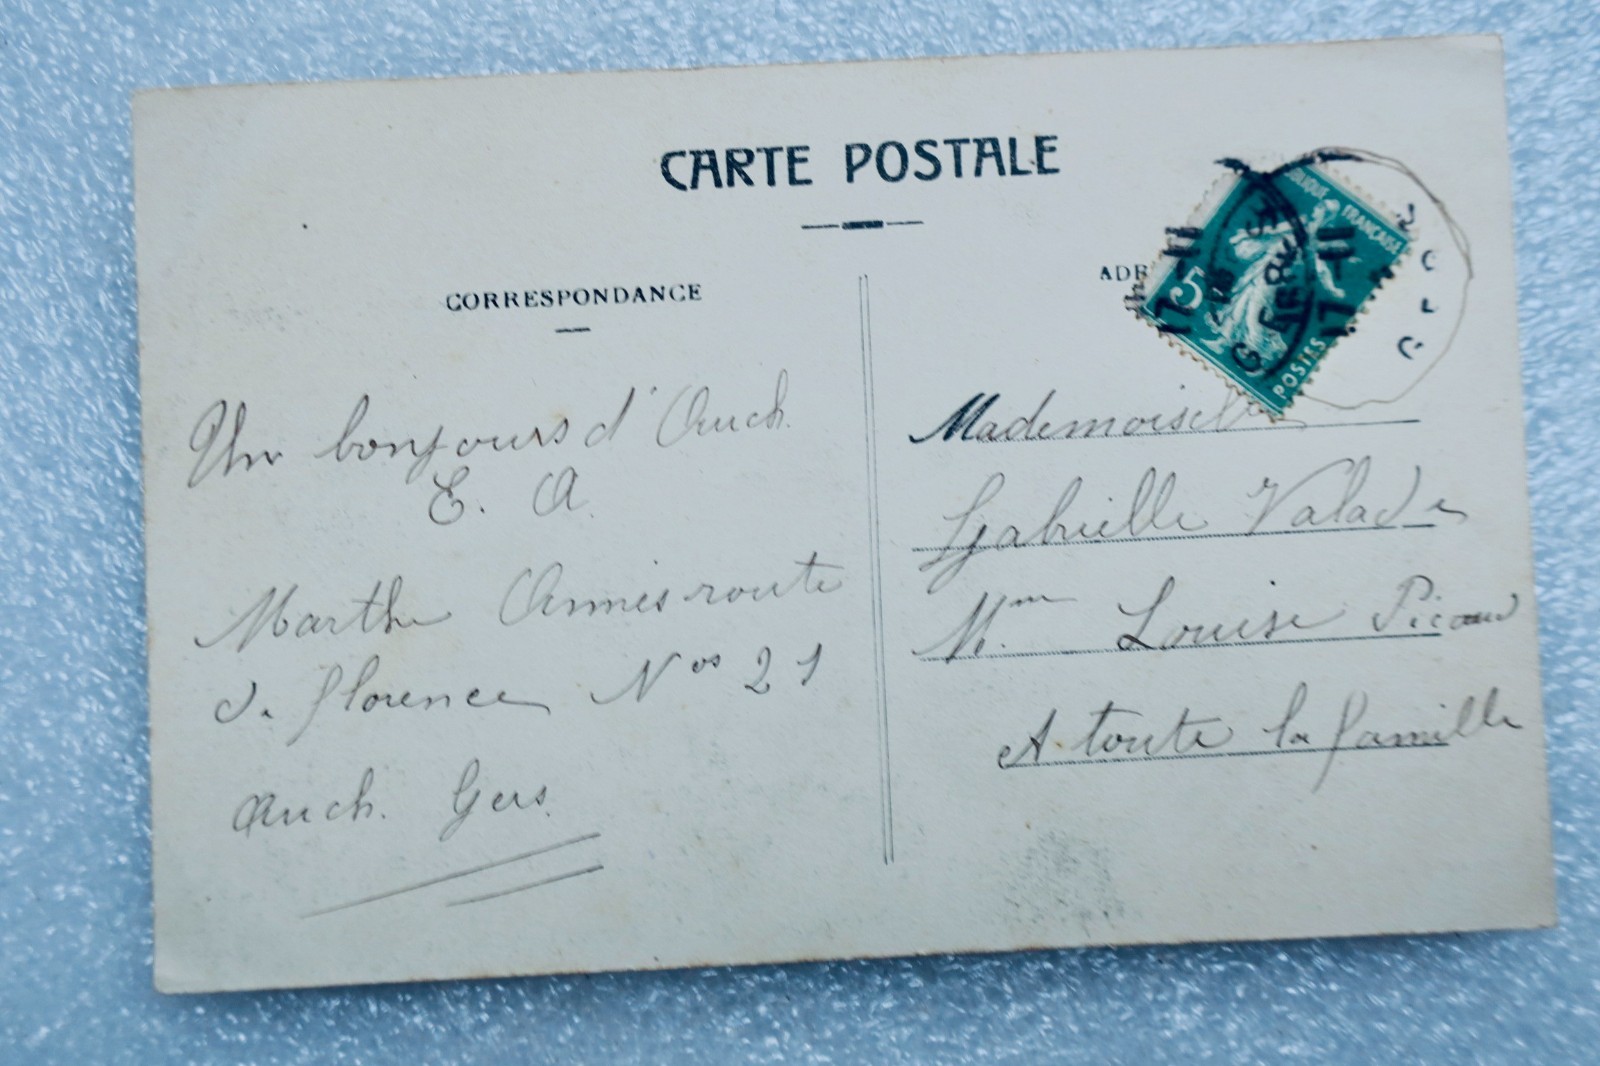 CARTE POSTALE
CORRESPONDANCE
Un bonjours d'Auch.
E. A.
Marthe Annès route
de florence Nos 21
Auch. Gers.
ADR
5
RÉPUBLIQUE FRANÇAISE
POSTES
17 - 11
17 - 11
GERS
Mademoiselle
Gabrielle Valade
Mme Louise Picaud
A toute la famille